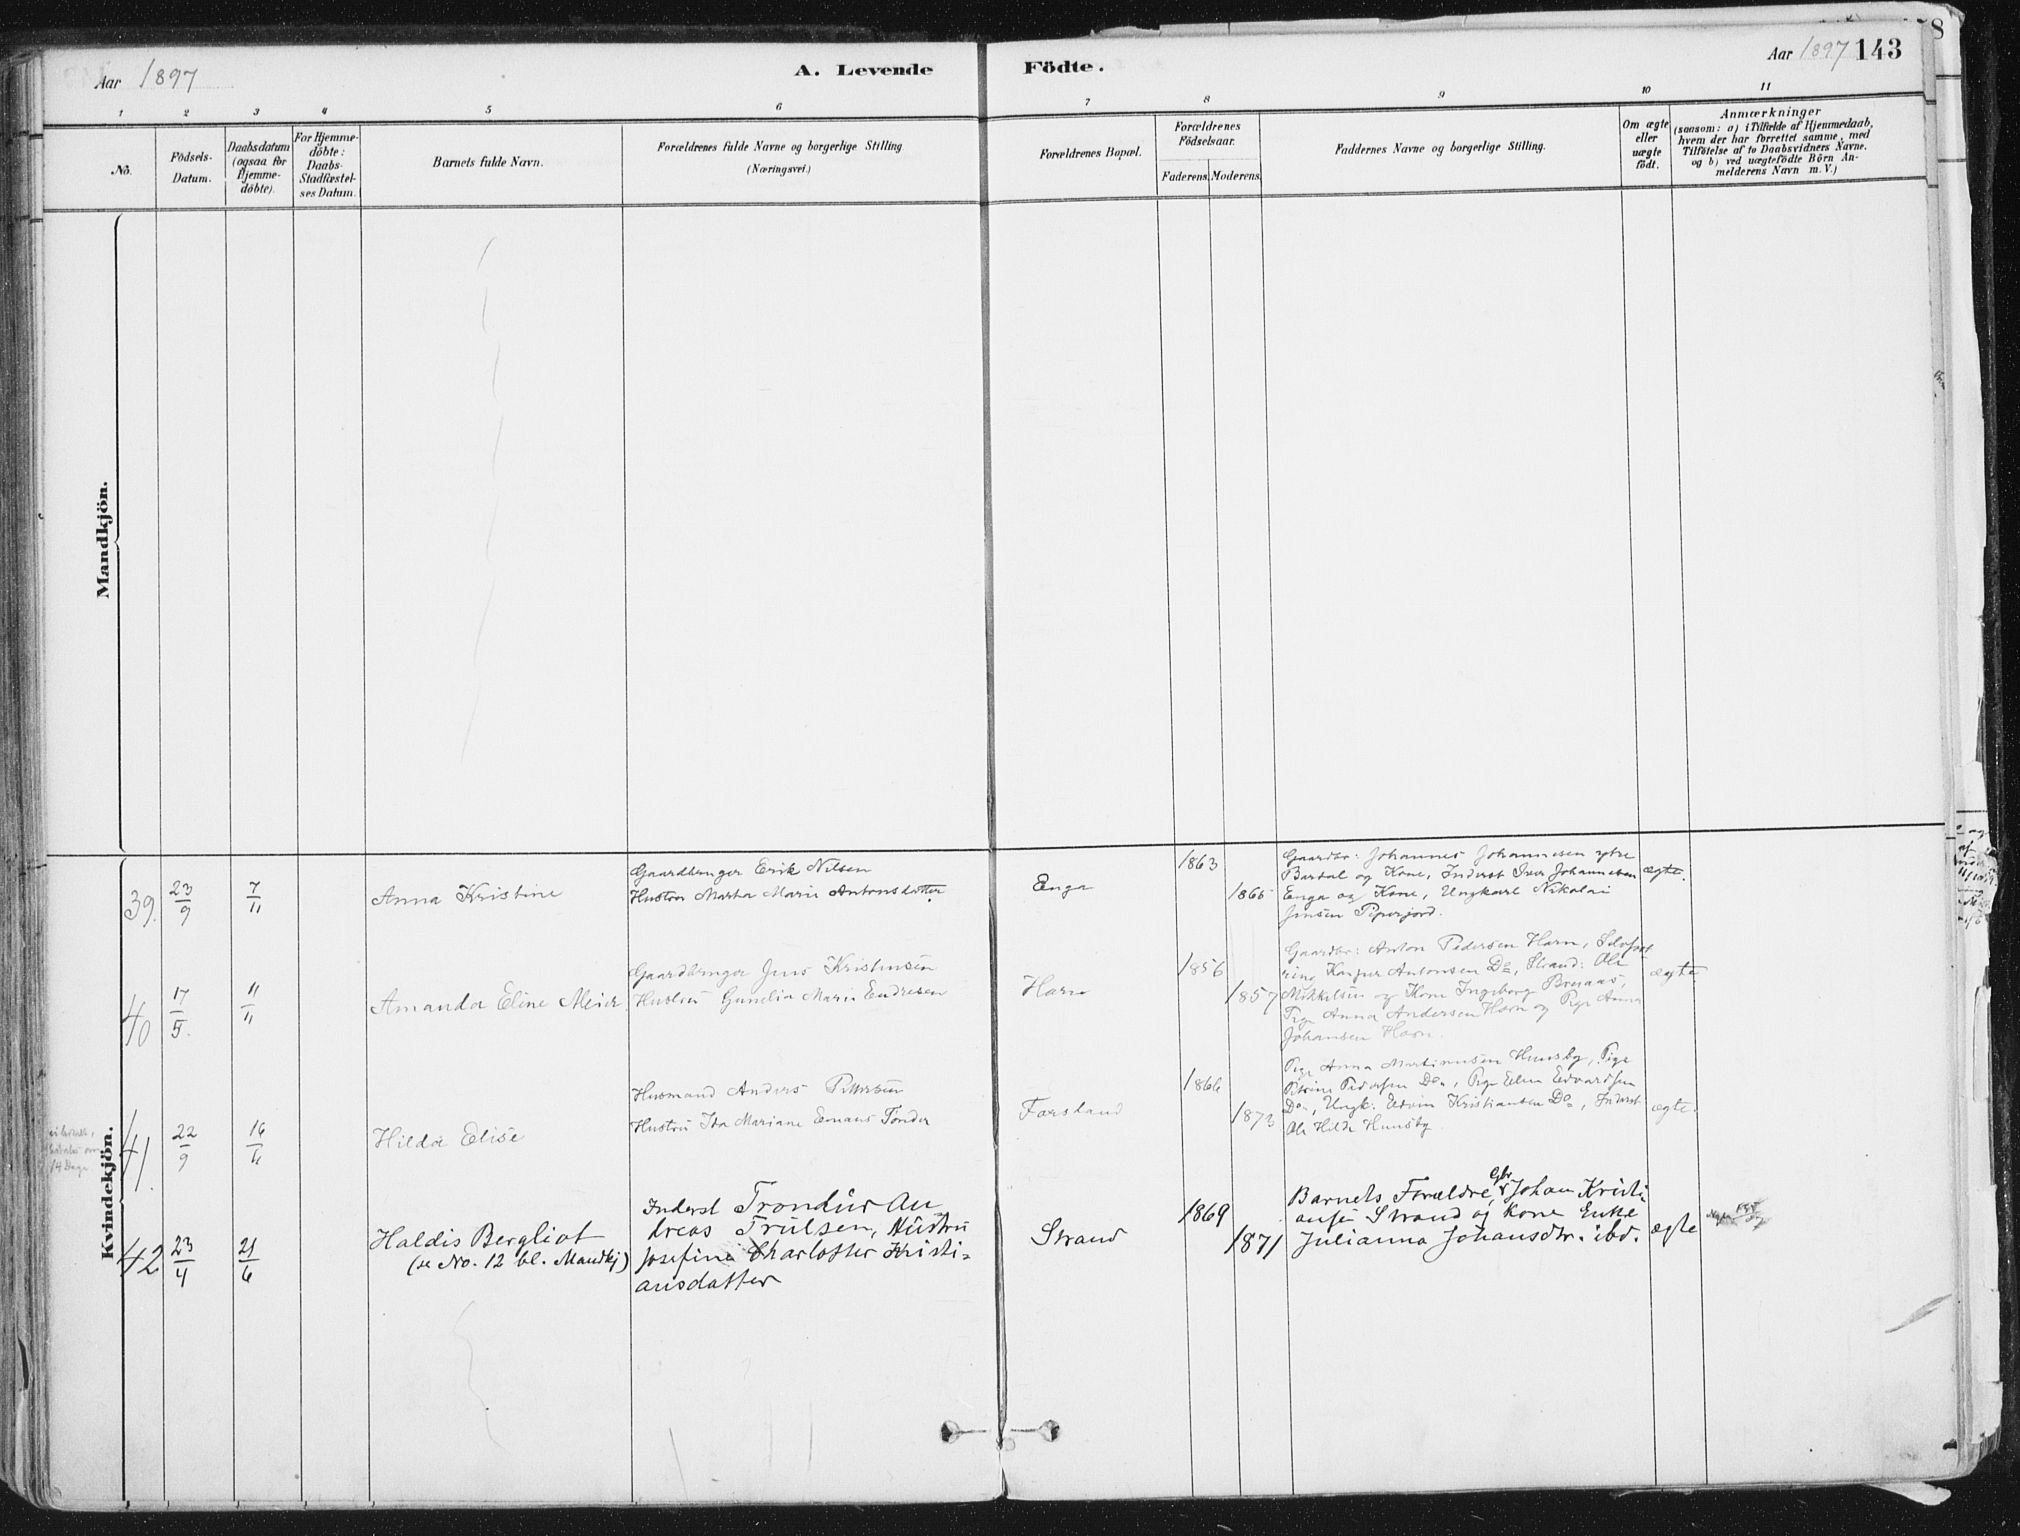 Aar 1897
A. Levende Födte.
Aar 1897 143
1 2 3 4 5 6 7 8 9 10 11
No.
Födsels-
Datum.
Daabsdatum
(ogsaa for
Hjemme-
döbte).
For Hjemme-
döbte:
Daabs-
Stadfæstel-
ses Datum.
Barnets fulde Navn.
Forældrenes fulde Navne og borgerlige Stilling
(Næringsvei.)
Forældrenes Bopæl.
Forældrenes
Födselsaar.
Faderens. Moderens.
Faddernes Navne og borgerlige Stilling.
Om ægte
eller
uægte
födt.
Anmærkninger
(saasom: a) i Tilfælde af Hjemmedaab,
hvem der har forrettet samme, med
Tilföielse af to Daabsvidners Navne.
og b) ved uægtefödte Börn An-
melderens Navn m. V.)
Mandkjön.
Kvindekjön.
39.
23/9
7/11
Anna Kristine
Gaardbruger Erik Nilsen
Hustru Martha Marie Antonsdatter
Enga
1863
1865
Gaardbr: Johannes Johannesen ytre
Bardal og Kone, Inderst Iver Johannesen
Enga og Kone, Ungkarl Nikolai
Jensen
ægte.
40
17/5.
11/11
Amanda Eline Meier
Gaardbruger Jens Kristensen
Hustru Gunelia Marie Endresen
Havn
1856
1857
Gaardbr: Anton Pedersen Havn,
Kaspar Antonsen Do, Strand: Ole
Mikkelsen og Kone Ingeborg
Pige Anna Andersen Havn og Pige Anna
Johansen Havn.
ægte
41.
22/9
16/11
14 Dage
Hilda Elise
Husmand Anders Pettersen
Hustru Ida Mariane Emaus Tønder
Forsland
1866
1873
Pige Anna Martinusen Husby, Pige
Petrine Pedersen Do, Pige Elen Edvardsen
Do, Ungk: Edvin Kristiansen Do, Inderst
Ole Hilde Husby.
ægte.
42
23/4
21/6
Haldis Bergliot
(se No. 12 bl. Mandkj)
Inderst Trondur An
dreas Trulsen, Hustru
Josefine Charlotter Kristi-
ansdatter
Strand
1869
1871
Barnets Forældre, Gbr Johan Kristi
ansen Strand og Kone Enke
Julianna Johansdtr. ibd.
ægte